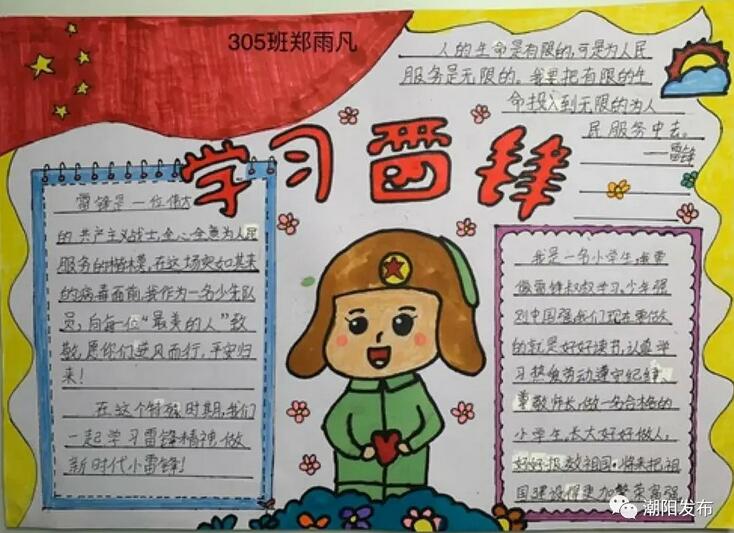 305班郑雨凡
人的生命是有限的,可是为人民
服务是无限的。我要把有限的生
命投入到无限的为人
民服务中去。
——雷锋
学习雷锋
雷锋是一位伟大
的共产主义战士,全心全意为人民
服务的楷模,在这场突如其来
的病毒面前,我作为一名少先队
员,向每位“最美的人”致
敬,愿你们逆风而行,平安归
来!
在这个特殊时期,我们
一起学习雷锋精神,做
新时代小雷锋!
我是一名小学生,我要
像雷锋叔叔学习,少年强
则中国强,我们现在要做
的就是好好读书,认真学
习热爱劳动遵守纪律、
尊敬师长,做一名合格的
小学生,长大好好做人,
好好报效祖国,将来把祖
国建设得更加繁荣富强
潮阳发布